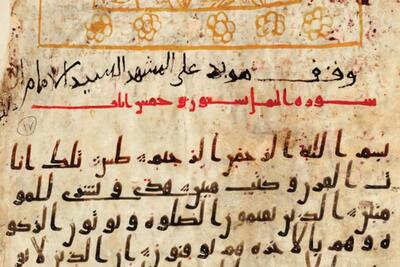 وقف موبد على المشهد السيد الامام
سوره النمل تسعون و خمس ايات
١٧
بسم الله الرحمن الرحيم طس تلك ايا
ت القرن و كتب مبين هدى و بشرى للمو
منين الذين يقيمون الصلوه و يوتون الزكو
ه و هم بالاخره هم يوقنون ان الذين لا يو